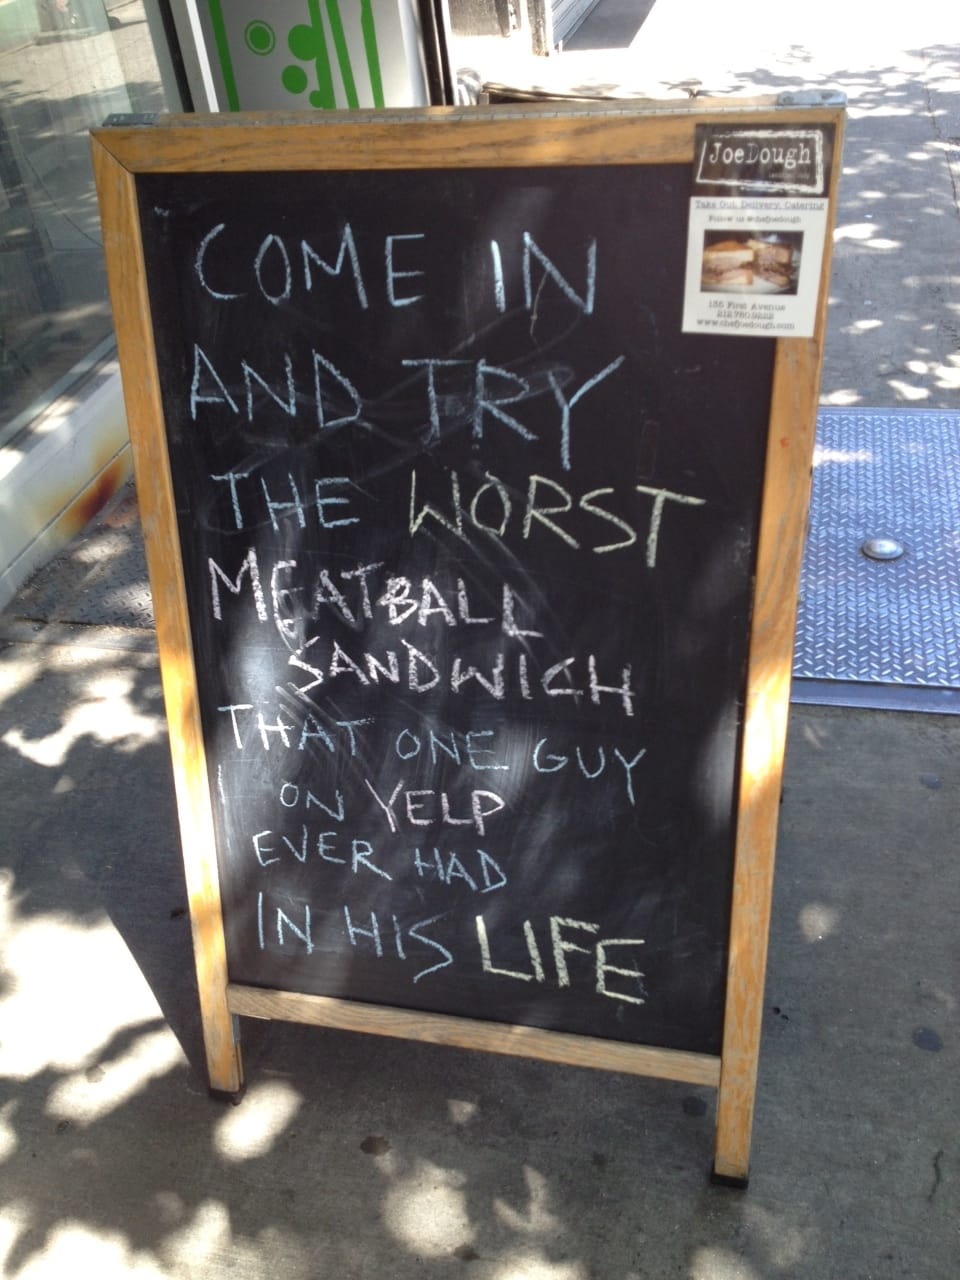 JoeDough
Take Out, Delivery, Catering
Follow us @chefjoedough
135 First Avenue
212.780.9222
www.chefjoedough.com
COME IN
AND TRY
THE WORST
MEATBALL
SANDWICH
THAT ONE GUY
ON YELP
EVER HAD
IN HIS LIFE